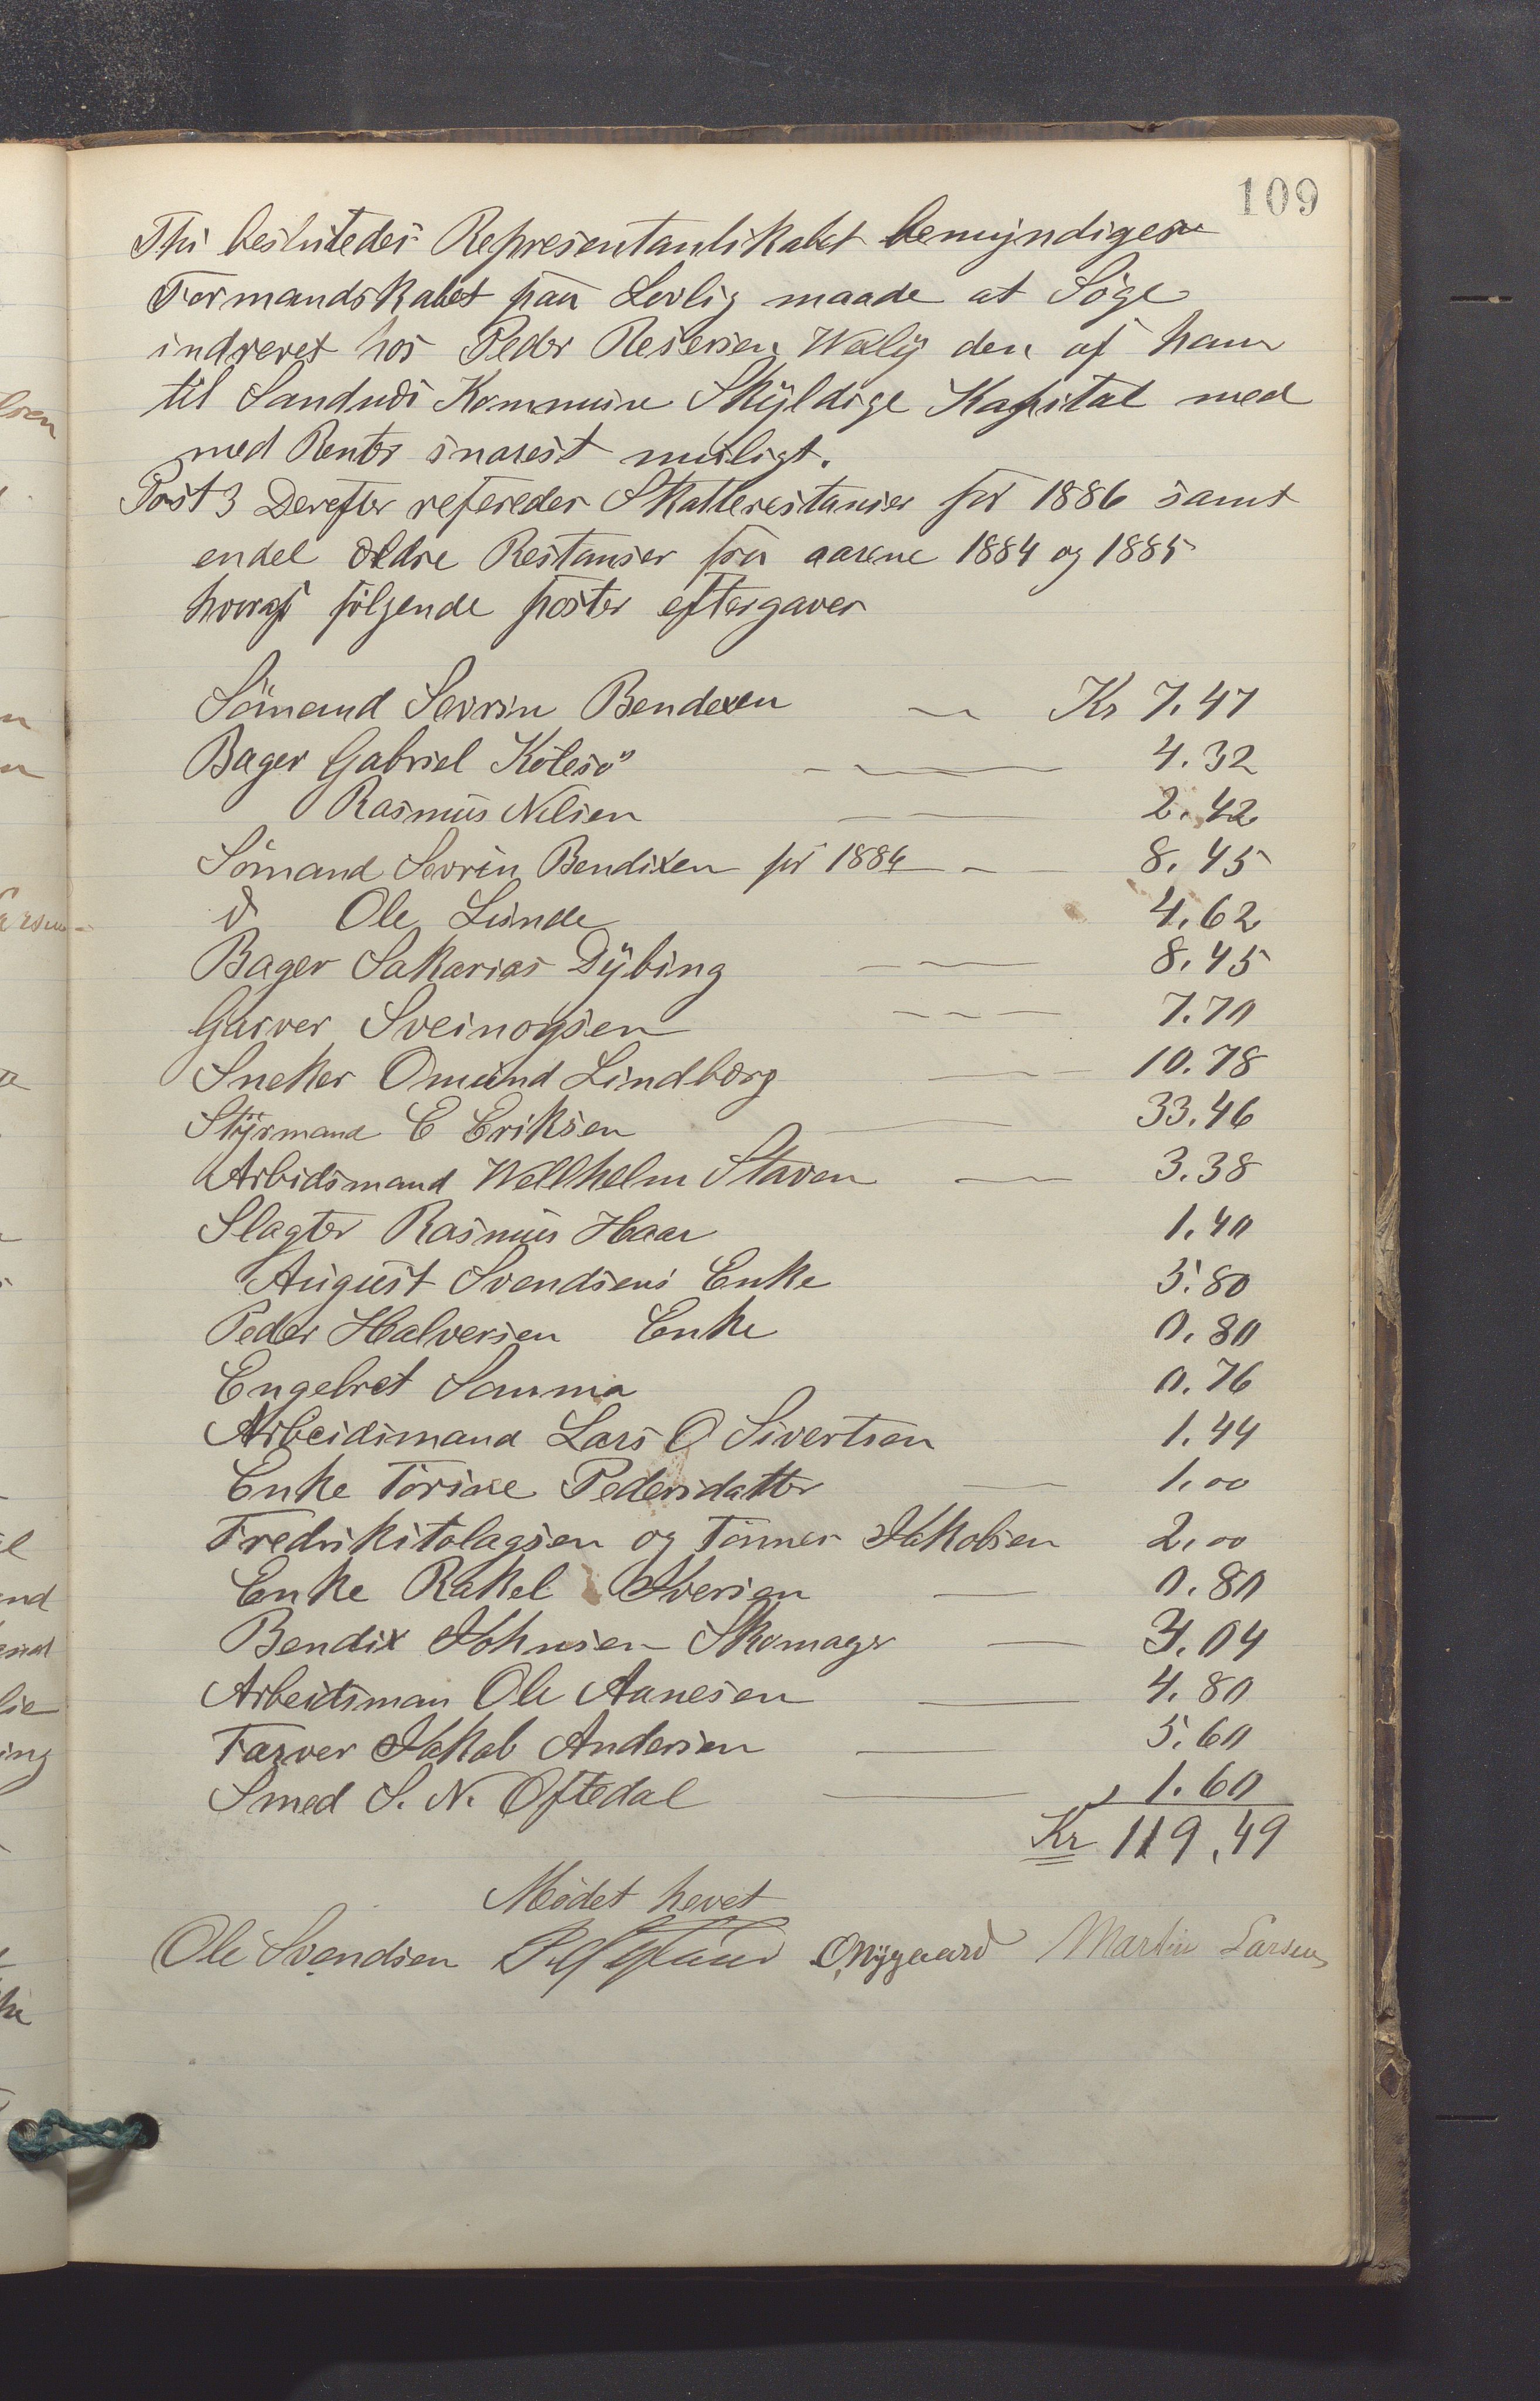 109
Thi beslutedes Representantskabet bemyndiges
Formandskabet paa Lovlig maade at Søge
indrevet hos Peder Reiersen Walig den af ham
til Sandnes Kommune Skyldige Kapital med
med Renter snarest muligt.
Post 3 Derefter refereder Skatterestanser for 1886 samt
endel ældre Restanser fra aarene 1884 og 1885
hvoraf følgende poster eftergaves
Sömand Sevrin Bendexen Kr 7.47
Bager Gabriel Kolesö 4.32
Rasmus Nilsen 2.42
Sömand Sevrin Bendixen for 1884 8.45
d Ole Lunde 4.62
Bager Sakarias Dybing 8.45
Garver Sveinogsen 7.70
Sneker Omund Lindberg 10.78
Styrmand E Eriksen 33.46
Arbidsmand Wellhelm Staven 3.38
Slagter Rasmus Haar 1.40
August Svendsens Enke 5.80
Peder Halversen Enke 0.80
Engelret Somma 0.76
Arbeidsmand Lars O Sivertsen 1.44
Enke Torine Pedersdatter 1.00
Fredrikstolagsen og Tönnes Jakobsen 2.00
Enke Rakel Iversen 0.80
Bendix Johnsen Skomager 3.04
Arbeidsman Ole Aanesen 4.80
Farver Jakob Andersen 5.60
Smed S. N. Oftedal 1.60
Kr 119.49
Mödet hevet
Ole Svendsen ONygaard Martin Larsen